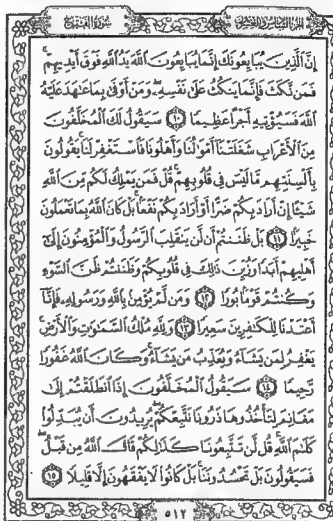 الجزء السادس والعشرون سورة الفتح
إِنَّ ٱلَّذِينَ يُبَايِعُونَكَ إِنَّمَا يُبَايِعُونَ ٱللَّهَ يَدُ ٱللَّهِ فَوْقَ أَيْدِيهِمْ
فَمَن نَّكَثَ فَإِنَّمَا يَنكُثُ عَلَىٰ نَفْسِهِۦ وَمَنْ أَوْفَىٰ بِمَا عَٰهَدَ عَلَيْهُ
ٱللَّهَ فَسَيُؤْتِيهِ أَجْرًا عَظِيمًا ١٠ سَيَقُولُ لَكَ ٱلْمُخَلَّفُونَ
مِنَ ٱلْأَعْرَابِ شَغَلَتْنَا أَمْوَٰلُنَا وَأَهْلُونَا فَٱسْتَغْفِرْ لَنَا يَقُولُونَ
بِأَلْسِنَتِهِم مَّا لَيْسَ فِى قُلُوبِهِمْ قُلْ فَمَن يَمْلِكُ لَكُم مِّنَ ٱللَّهِ
شَيْـًٔا إِنْ أَرَادَ بِكُمْ ضَرًّا أَوْ أَرَادَ بِكُمْ نَفْعًا بَلْ كَانَ ٱللَّهُ بِمَا تَعْمَلُونَ
خَبِيرًا ١١ بَلْ ظَنَنتُمْ أَن لَّن يَنقَلِبَ ٱلرَّسُولُ وَٱلْمُؤْمِنُونَ إِلَىٰ
أَهْلِيهِمْ أَبَدًا وَزُيِّنَ ذَٰلِكَ فِى قُلُوبِكُمْ وَظَنَنتُمْ ظَنَّ ٱلسَّوْءِ
وَكُنتُمْ قَوْمًا بُورًا ١٢ وَمَن لَّمْ يُؤْمِنۢ بِٱللَّهِ وَرَسُولِهِۦ فَإِنَّآ
أَعْتَدْنَا لِلْكَٰفِرِينَ سَعِيرًا ١٣ وَلِلَّهِ مُلْكُ ٱلسَّمَٰوَٰتِ وَٱلْأَرْضِ
يَغْفِرُ لِمَن يَشَآءُ وَيُعَذِّبُ مَن يَشَآءُ وَكَانَ ٱللَّهُ غَفُورًا
رَّحِيمًا ١٤ سَيَقُولُ ٱلْمُخَلَّفُونَ إِذَا ٱنطَلَقْتُمْ إِلَىٰ
مَغَانِمَ لِتَأْخُذُوهَا ذَرُونَا نَتَّبِعْكُمْ يُرِيدُونَ أَن يُبَدِّلُوا۟
كَلَٰمَ ٱللَّهِ قُل لَّن تَتَّبِعُونَا كَذَٰلِكُمْ قَالَ ٱللَّهُ مِن قَبْلُ
فَسَيَقُولُونَ بَلْ تَحْسُدُونَنَا بَلْ كَانُوا۟ لَا يَفْقَهُونَ إِلَّا قَلِيلًا ١٥
٥١٢